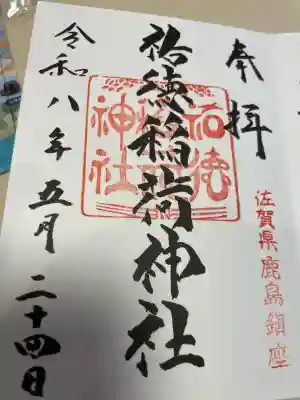 奉拝
佐賀県鹿島鎮座
祐徳稲荷神社
祐徳
神社
令和八年五月二十四日